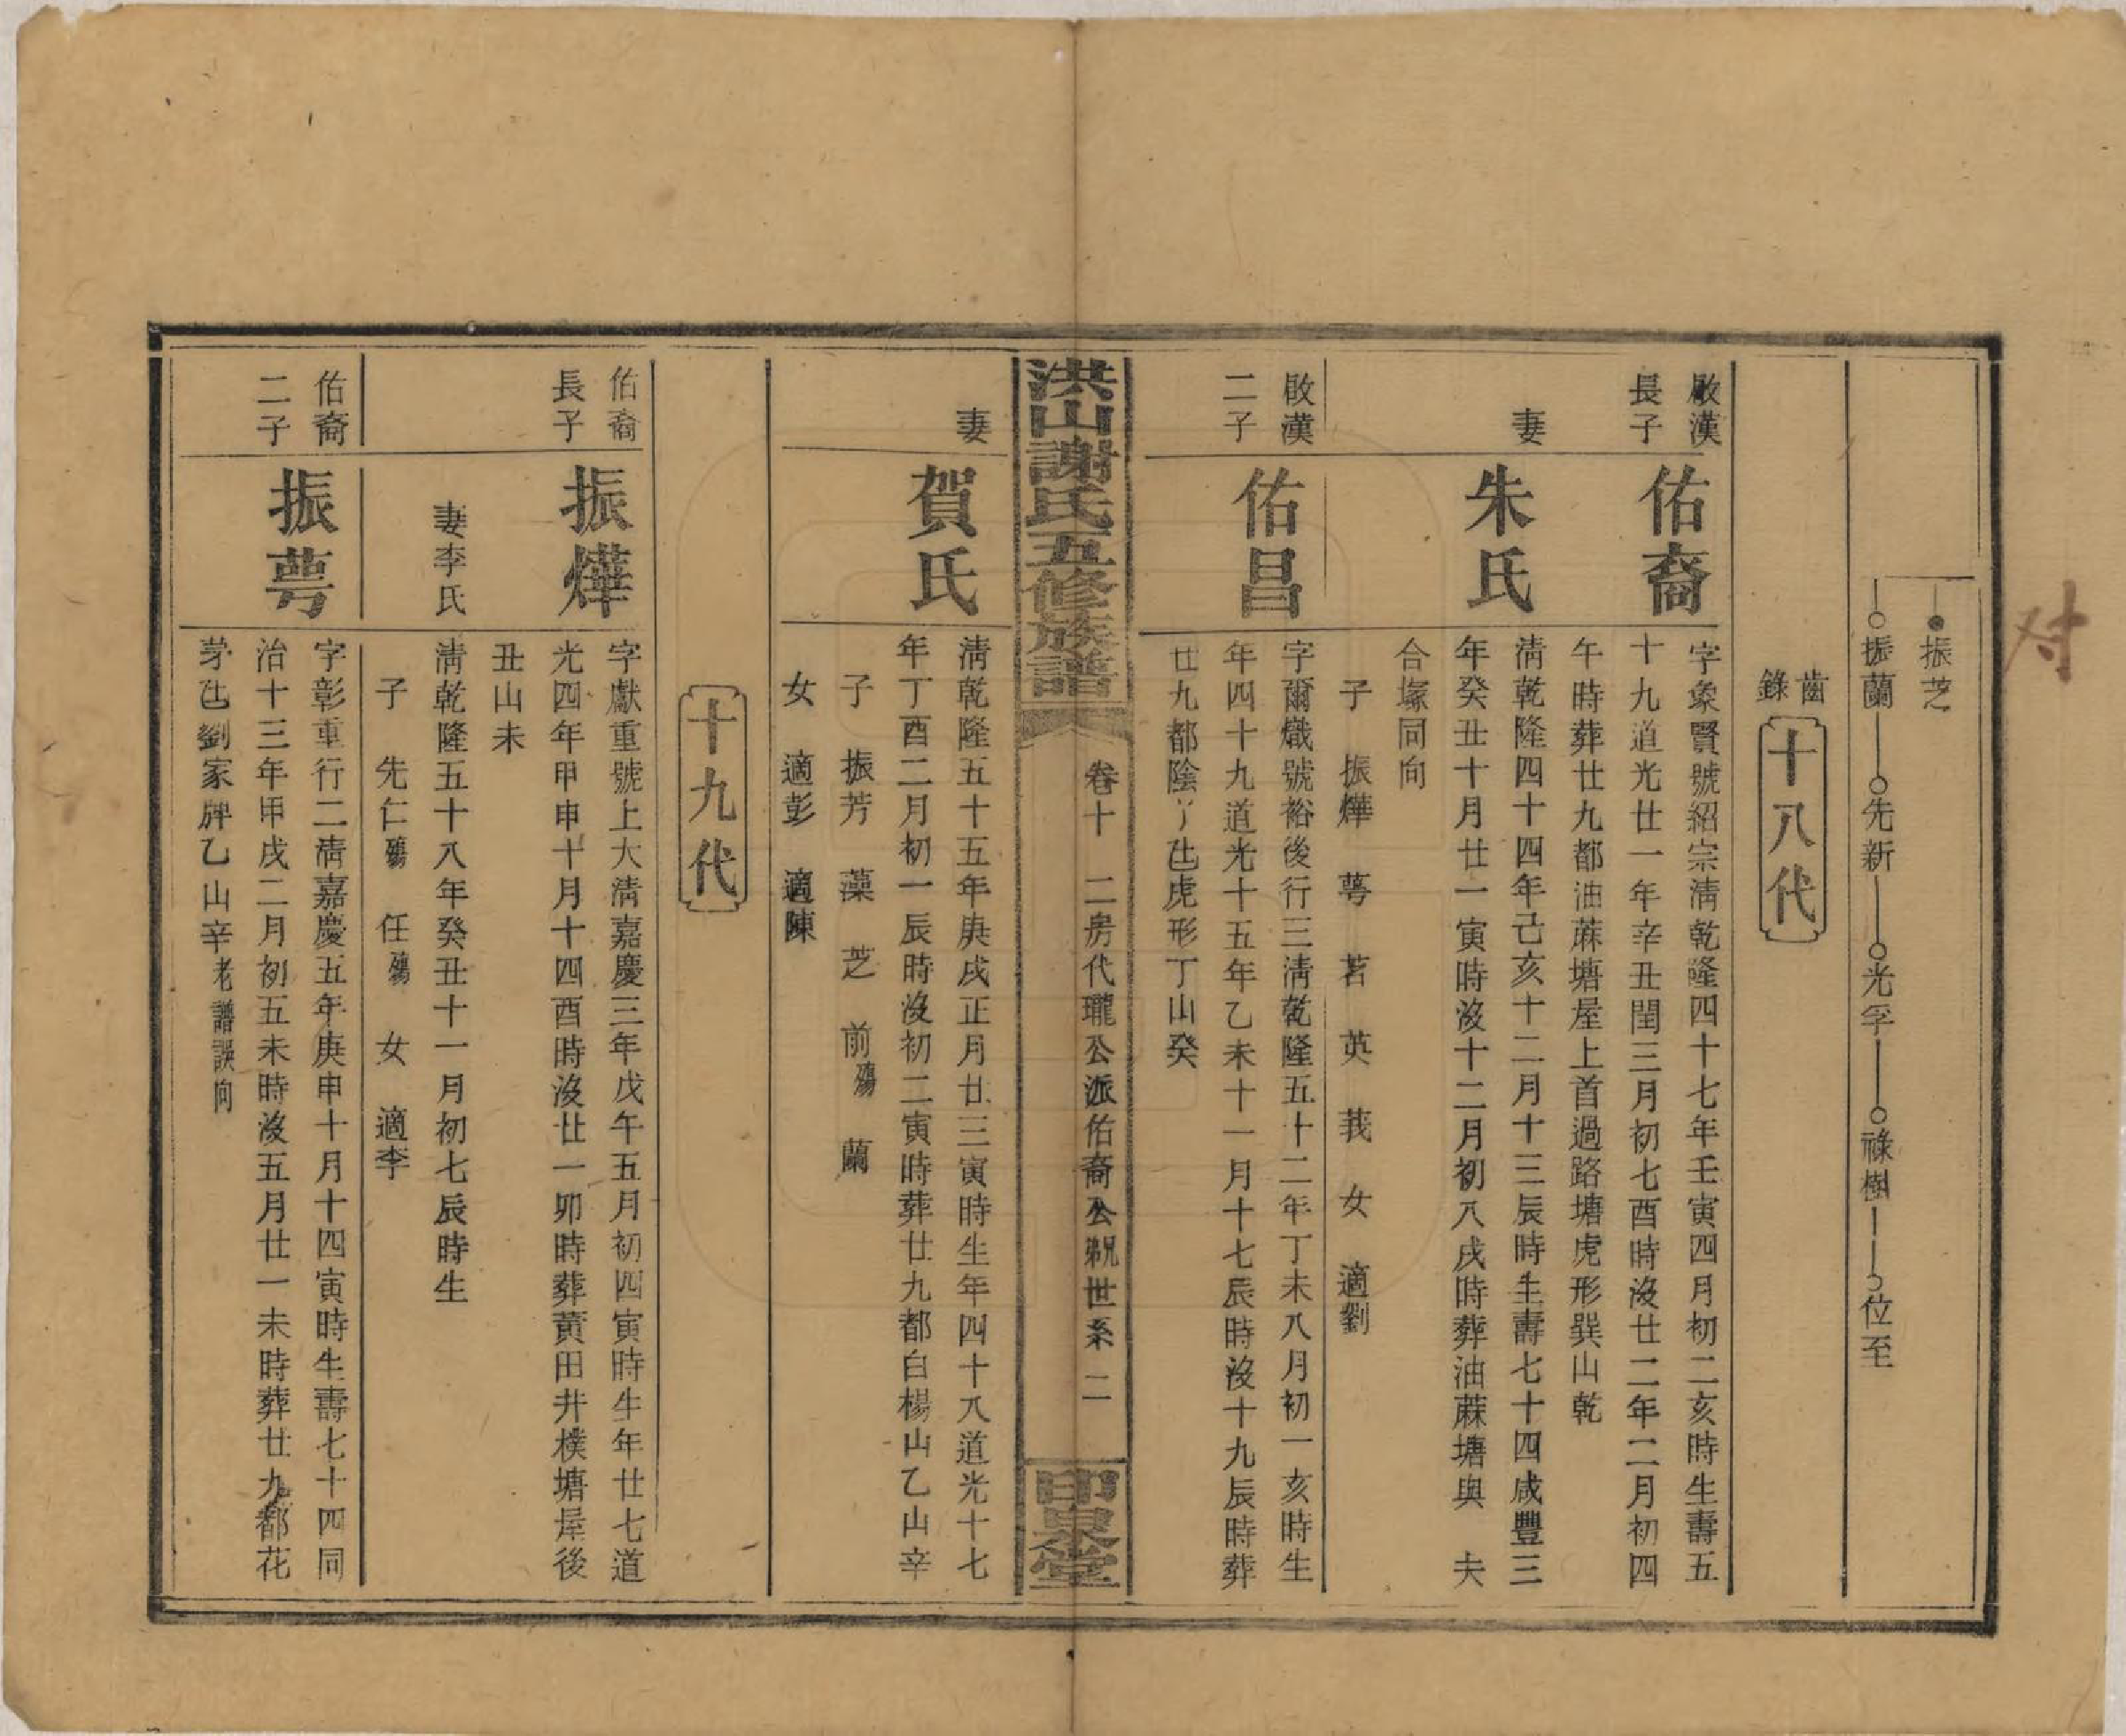 对
振芝
振蘭 先新 光孚 祿樹 位至
齒錄
十八代
啟漢長子
佑裔
字象賢號紹宗淸乾隆四十七年壬寅四月初二亥時生壽五
十九道光廿一年辛丑閏三月初七酉時沒廿二年二月初四
午時葬廿九都油蔴塘屋上首過路塘虎形巽山乾
妻
朱氏
淸乾隆四十四年己亥十二月十三辰時生壽七十四咸豐三
年癸丑十月廿一寅時沒十二月初八戌時葬油蔴塘與 夫
合塚同向
子 振燁 蕚 茗 英 莪 女 適劉
啟漢二子
佑昌
字爾熾號裕後行三淸乾隆五十二年丁未八月初一亥時生
年四十九道光十五年乙未十一月十七辰時沒十九辰時葬
廿九都陰丫乪虎形丁山癸
洪山謝氏五修族譜
卷十 二房代瓏公派佑裔公郹世系 二
印泉堂
妻
賀氏
淸乾隆五十五年庚戌正月廿三寅時生年四十八道光十七
年丁酉二月初一辰時沒初二寅時葬廿九都白楊山乙山辛
子 振芳 藻 芝 前殤 蘭
女 適彭 適陳
十九代
佑裔長子
振燁
字獻重號上大淸嘉慶三年戊午五月初四寅時生年廿七道
光四年甲申十月十四酉時沒廿一卯時葬黃田井樸塘屋後
丑山未
妻李氏
淸乾隆五十八年癸丑十一月初七辰時生
子 先仁殤 任殤 女 適李
佑裔二子
振蕚
字彰重行二淸嘉慶五年庚申十月十四寅時生壽七十四同
治十三年甲戌二月初五未時沒五月廿一未時葬廿九都花
茅乪劉家牌乙山辛老譜誤向